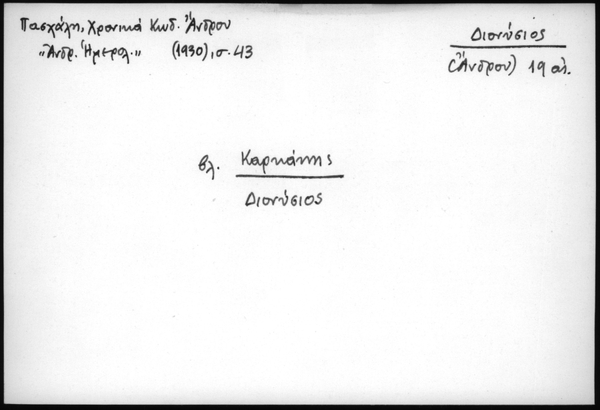 Πασχάλη, Χρονικά Κωδ. Ἄνδρου
"Ἀνδρ. Ἡμερολ." (1930), σ. 43
Διονύσιος
(Ἄνδρου) 19 αἰ.
βλ. Καρκάνης
Διονύσιος